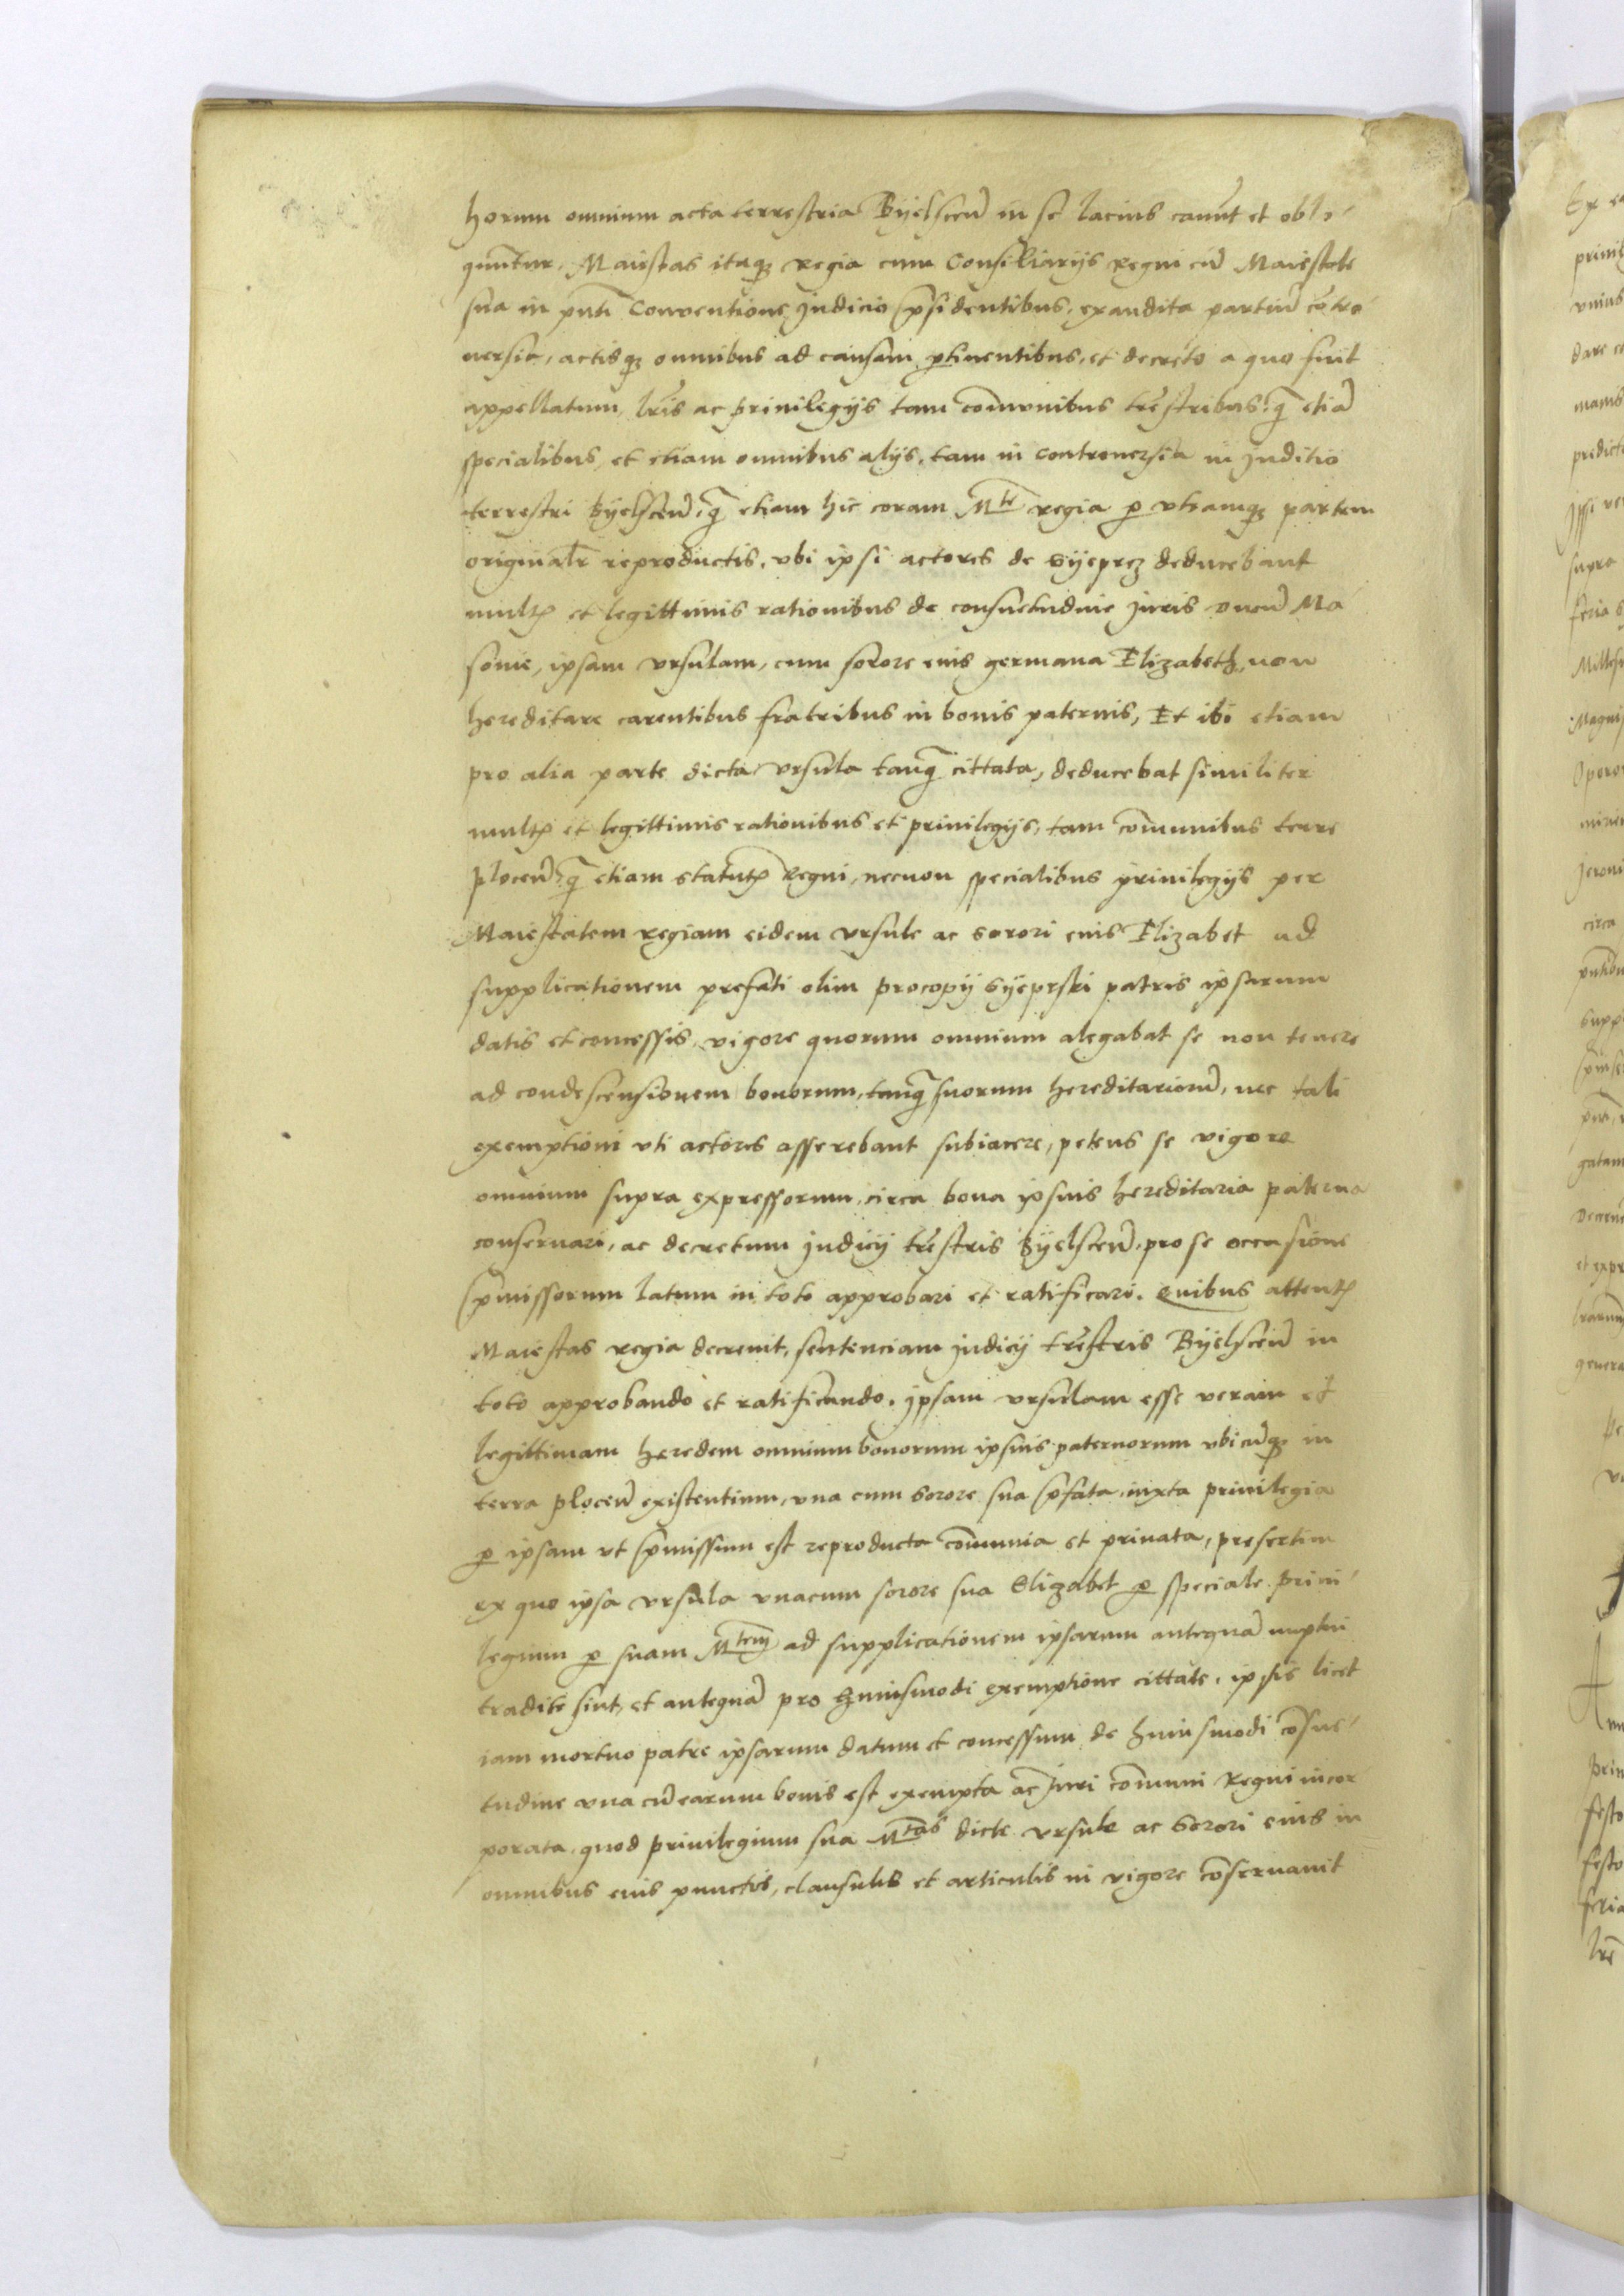 horum omnium acta terrestria Byelscen̄ in se lacius cauūt et oblo-
quuntur, Maiestas itaqȝ regia cum Consiliarijs regni cū Maiestate
sua in pn̄ti Conventione Judicio p̄sidentibus, exaudita partiū cōtro-
uersia, actisqȝ omnibus ad causam ꝑtinentibus, et decreto a quo fuit
appellatum, lr̄is ac priuilegijs tam com̄unibus tr̄estribus, q̄ etiā
specialibus, et etiam omnibus alijs, tam in controuersia in Juditio
terrestri Byelscen̄, q̄ etiam hic coram Mte regia ꝑ vtramqȝ partem
originalr̄ reproductis, vbi ipsi actores de Syeprcz deducebant
mult̄ et legittimis rationibus de consuetudine Juris ducū Ma-
souie, ipsam vrsulam, cum sorore eius germana Elizabeth, non
hereditare carentibus fratribus in bonis paternis, Et ibi etiam
pro alia parte dicta vrsula tanq̄ cittata, deducebat similiter
mult̄ et legittimis rationibus et priuilegijs, tam com̄unibus terre
plocen̄ q̄ etiam statut̄ Regni, necnon specialibus priuilegijs per
Maiestatem regiam eidem vrsule ac sorori eius Elizabet ad
supplicationem prefati olim procopij Syeprski patris ipsarum
datis et concessis, vigore quorum omnium alegabat se non tenere
ad condescensionem bonorum, tanq̄ suorum hereditariorū, nec tali
exemptioni vti actores asserebant subiacere, petens se vigore
omnium supra expressorum, circa bona ipsius hereditaria paterna
conseruari, ac decretum Judicij tr̄estris Byelscen̄, pro se occasione
p̄missorum latum in toto approbari et ratificari. Quibus attent̄
Maiestas regia decreuit, sentenciam Judicij tr̄estris Byelscen̄ in
toto approbando et ratificando. Ipsam vrsulam esse veram et
legittimam heredem omnium bonorum ipsius paternorum vbicūqȝ in
terra plocen̄ existentium, vna cum sorore sua p̄fata, iuxta priuilegia
ꝑ ipsam vt p̄missum est reproducta com̄unia et priuata, presertim
ex quo ipsa vrsula vnacum sorore sua Elizabet ꝑ speciale priui-
legium ꝑ suam Mtem ad supplicationem ipsarum antequā nuptui
tradite sint, et antequā pro huiusmodi exemptione cittate, ipsis licet
iam mortuo patre ipsarum datum et concessum de huiusmodi cōsue-
tudine vna cū earum bonis est exempta ac Juri com̄uni Regni incor-
porata, quod priuilegium sua Mtas dicte vrsule ac sorori eius in
omnibus eius punctis, clausulis et articulis in vigore cōseruauit